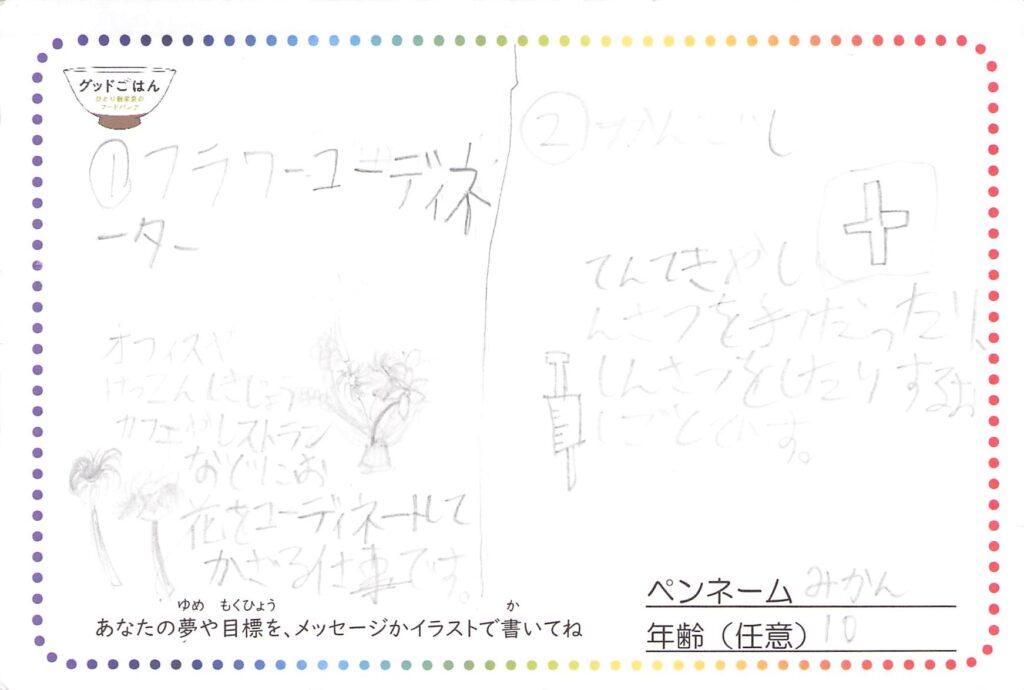 グッドごはん
ひとり親家庭の
フードバンク
① フラワーコーディネ
ーター
オフィスや
けっこんしきじょう
カフェやレストラン
などにお
花をコーディネートして
かざる仕事です。
② かんごし
てんてきやし
んさつを手つだったり、
しんさつをしたりするお
しごとです。
ゆめ もくひょう か
あなたの夢や目標を、メッセージかイラストで書いてね
ペンネーム みかん
年齢（任意） 10